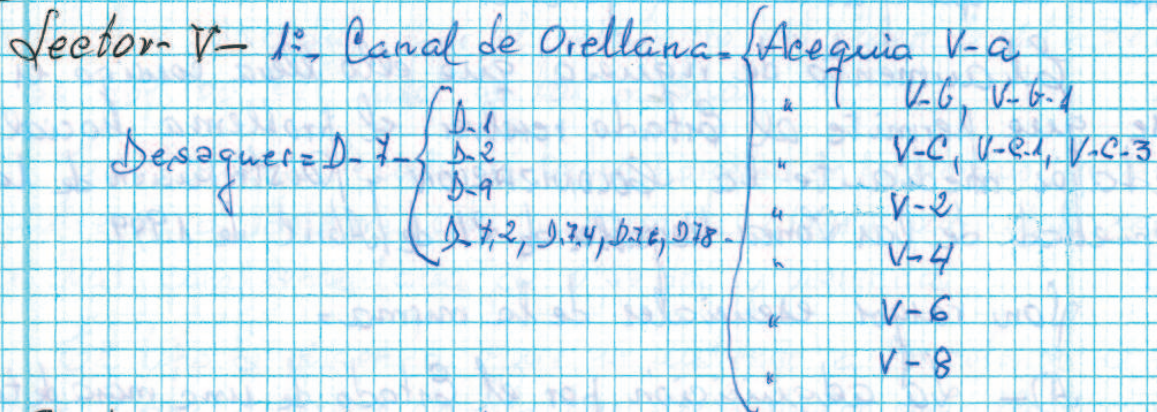 Sector- V- 1º- Canal de Orellana = Acequia V-a
" V-b, V-b-1
" V-C, V-C-1, V-C-3
" V-2
" V-4
" V-6
" V-8
Desagües = D-7-
D-1
D-2
D-9
D-7.2, D.7.4, D.7.6, D78-